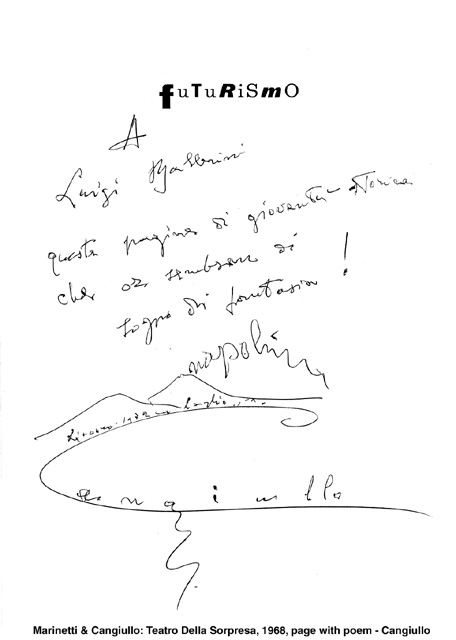 fuTuRiSmO
A
Luigi Ballerini
queste pagine di gioventù storica
che or sembran di
sogno di fantasia!
napoli
Livorno luglio
Cangiullo
Marinetti & Cangiullo: Teatro Della Sorpresa, 1968, page with poem - Cangiullo